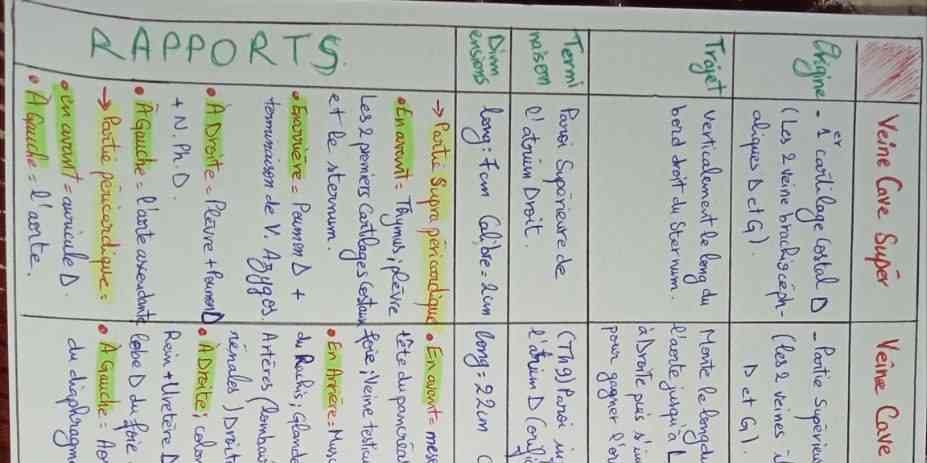 Veine Cave Supér
Veine Cave
Origine
- 1er cartilage costal D
(Les 2 veine brachiocéph-
aliques D et G).
- Partie Supérieu
(les 2 veines
D et G).
Trajet
Verticalement le long du
bord droit du Sternum.
Monte le long du
l'aorte jusqu'à
à Droite puis
pour gagner
Termi
naison
Paroi Supérieure de
l'atrium Droit.
(Th9) Paroi
l'atrium D
Dim
ensions
long: 7cm Calibre = 2cm
long = 22cm
RAPPORTS
→ Partie Supra péricardique
• En avant = Thymus, plèvre
Les 2 premiers Cartilages Costaux
et le sternum.
• En arrière = Poumon D +
terminaison de V. Azygos.
• A Droite = Plèvre + Poumon D
+ N. Ph. D.
• A Gauche = l'aorte ascendante
→ Partie péricardique =
• en avant = auricule D.
• A Gauche = l'aorte.
• En avant =
tête du pancréa
foie, Veine
• En Arrière = Musc
du Rachis, Glande
Artères (lombai
rénales) Droit
• A Droite; colon
Rein + Uretère D
lobe D du foie
• A Gauche = Aor
du diaphragm